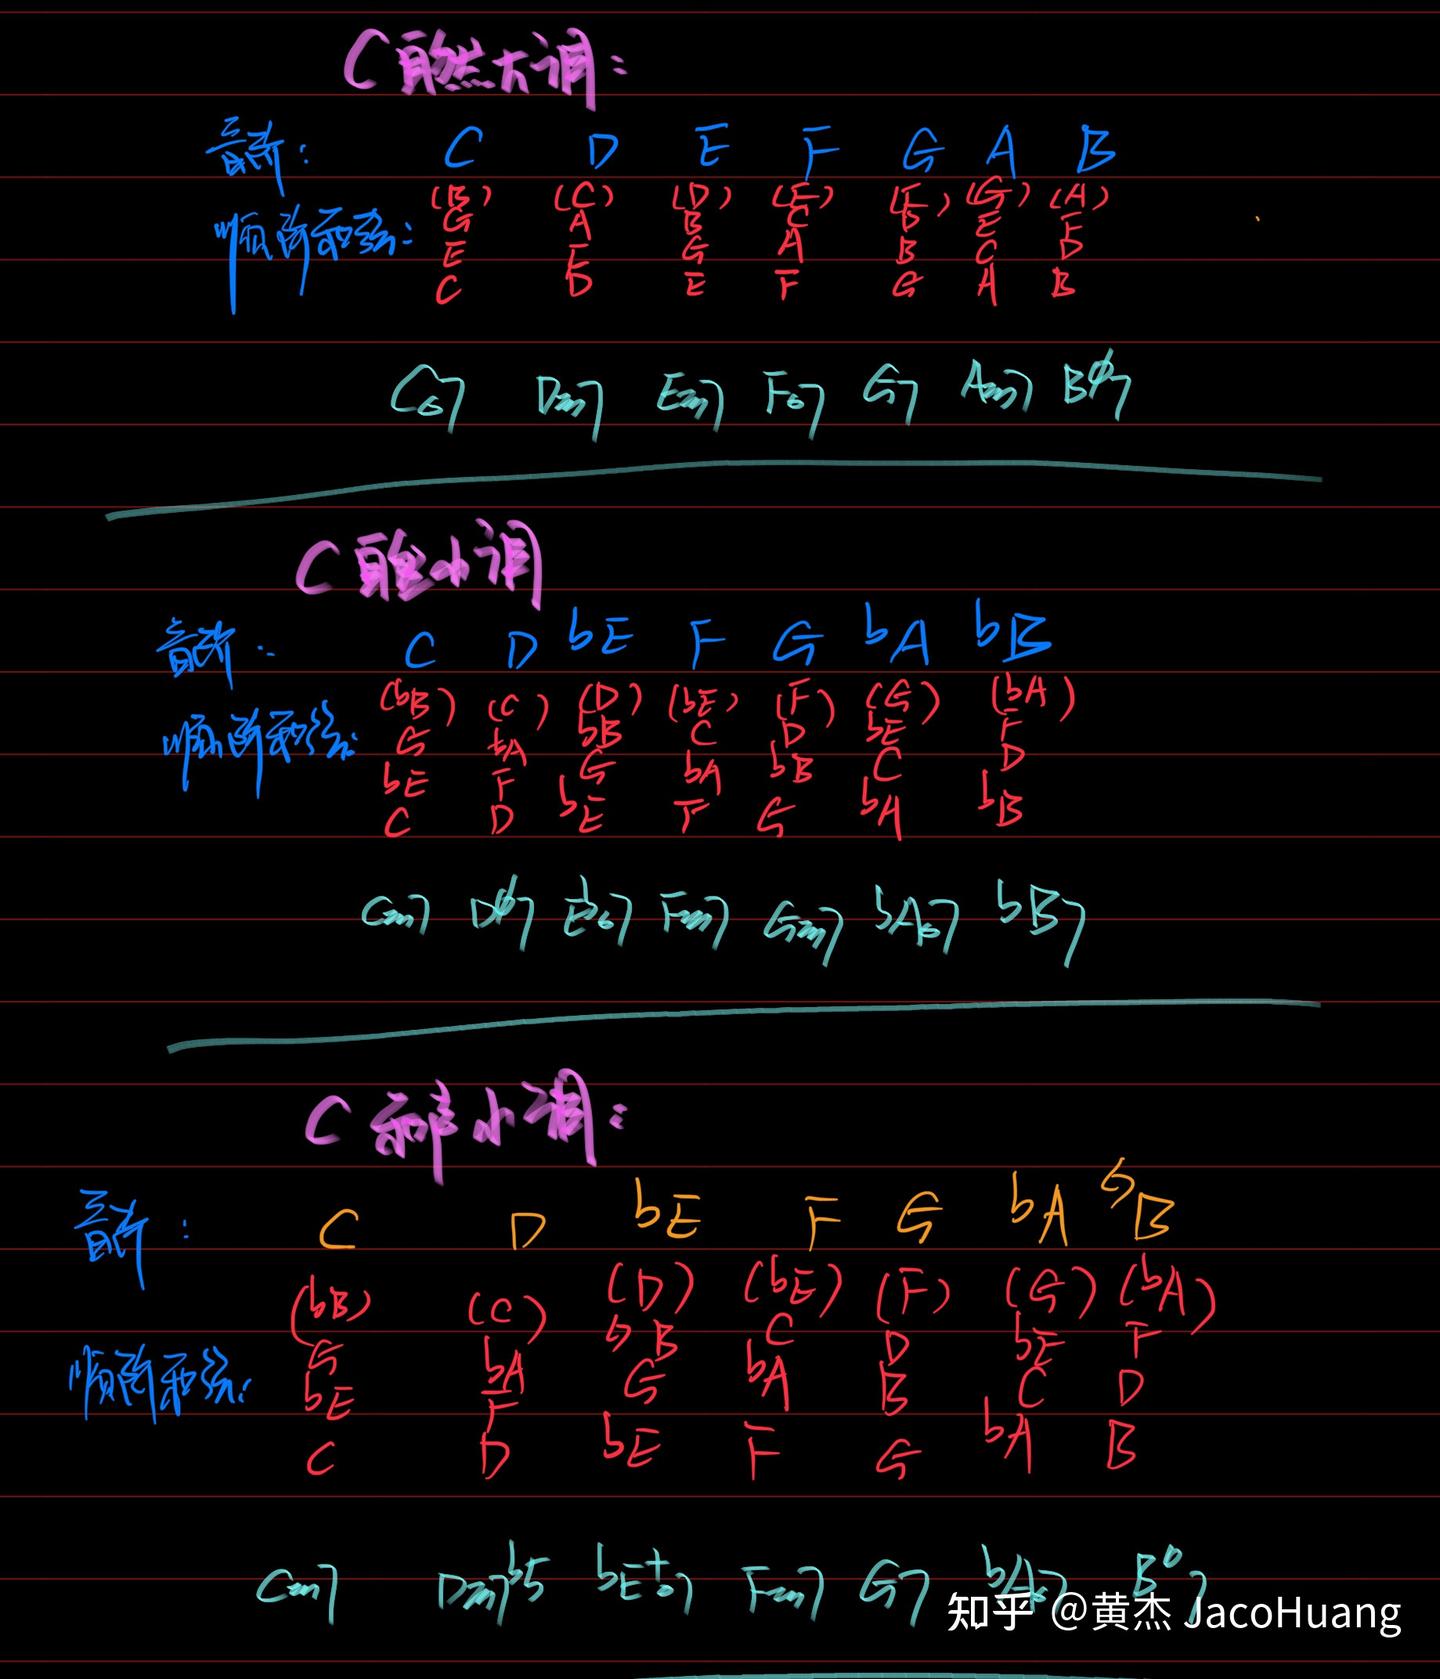 C 自然大调:
音阶: C D E F G A B
(B) (C) (D) (E) (F) (G) (A)
顺阶和弦: G A B C D E F
E F G A B C D
C D E F G A B
C7 Dm7 Em7 F7 G7 Am7 Bø7
C 自然小调
音阶: C D bE F G bA bB
(bB) (C) (D) (bE) (F) (G) (bA)
顺阶和弦: G bA bB C D bE F
bE F G bA bB C D
C D bE F G bA bB
Cm7 Dø7 Eb7 Fm7 Gm7 bA7 bB7
C 和声小调:
音阶: C D bE F G bA B
(bB) (C) (D) (bE) (F) (G) (bA)
顺阶和弦: G bA B C D bE F
bE F G bA B C D
C D bE F G bA B
Cm7 Dm7b5 bE+7 Fm7 G7 bA7 Bo7
知乎 @黄杰 JacoHuang